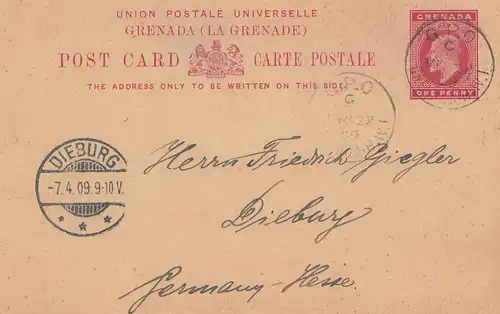 UNION POSTALE UNIVERSELLE
GRENADA (LA GRENADE)
POST CARD CARTE POSTALE
THE ADDRESS ONLY TO BE WRITTEN ON THIS SIDE.
GRENADA
ONE PENNY
G.P.O
C
G.P.O
C
22
09
DIEBURG
-7.4.09.9-10V.
Herrn Friedrich Giegler
Dieburg
Germany-Hesse.